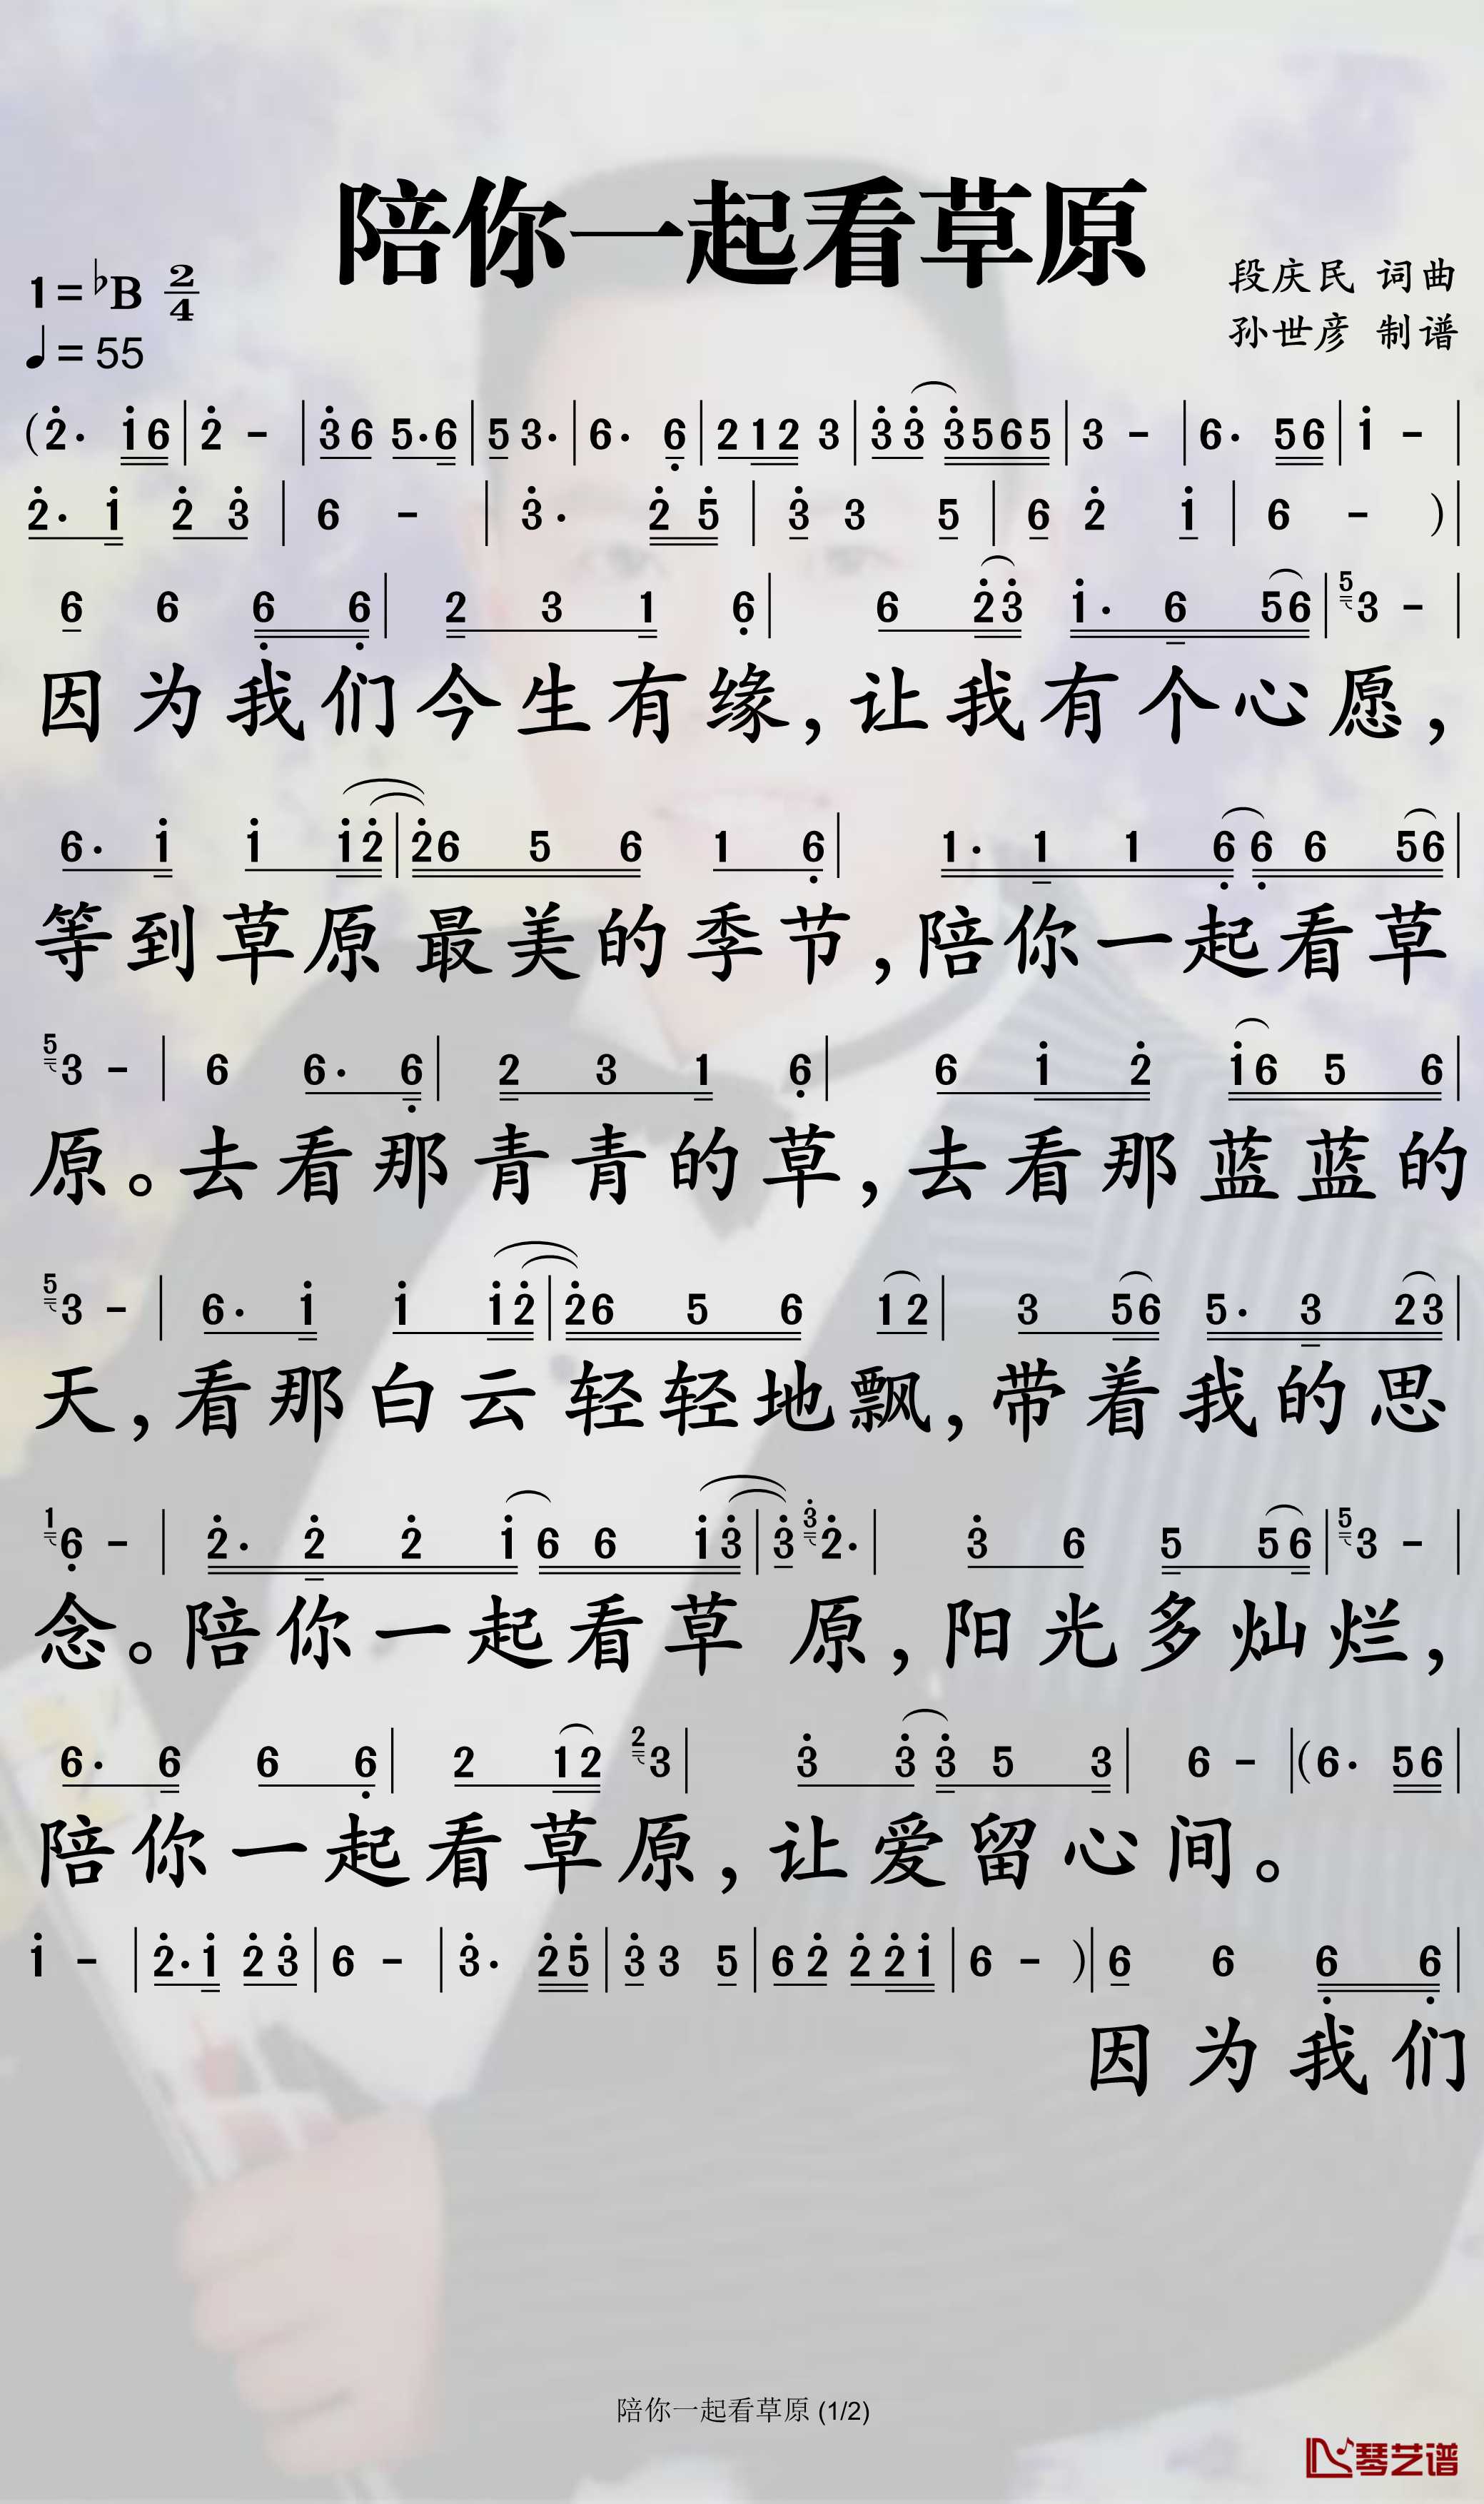 陪你一起看草原
1=♭B 2/4
♩=55
段庆民 词曲
孙世彦 制谱
(2̇. 1̇6|2̇ -|3̇6 5.6|5 3.|6. 6̣|212 3|3̇3̇ 3̇565|3 -|6. 56|1̇ -|
2̇. 1̇ 2̇ 3̇|6 -|3̇. 2̇5̇|3̇ 3 5|6 2̇ 1̇|6 -)|
6 6 6̣ 6̣|2 3 1 6̣|6 2̇3̇ 1̇. 6 56|⁵3 -|
因为我们今生有缘,让我有个心愿,
6. 1̇ 1̇ 1̇2̇|2̇6 5 6 1 6̣|1. 1 1 6̣ 6̣ 6 56|
等到草原最美的季节,陪你一起看草
⁵3 -|6 6. 6̣|2 3 1 6̣|6 1̇ 2̇ 1̇6 5 6|
原。去看那青青的草,去看那蓝蓝的
⁵3 -|6. 1̇ 1̇ 1̇2̇|2̇6 5 6 12|3 56 5. 3 23|
天,看那白云轻轻地飘,带着我的思
¹6̣ -|2̇. 2̇ 2̇ 1̇ 6 6 1̇3̇|3̇ ³̇2̇.|3̇ 6 5 56|⁵3 -|
念。陪你一起看草原,阳光多灿烂,
6. 6 6 6̣|2 12 ²3|3̇ 3̇ 3̇ 5 3|6 -|(6. 56|
陪你一起看草原,让爱留心间。
1̇ -|2̇.1̇ 2̇3̇|6 -|3̇. 2̇5̇|3̇ 3 5|62̇ 2̇2̇1̇|6 -)|6 6 6̣ 6̣|
因为我们
陪你一起看草原 (1/2)
琴艺谱